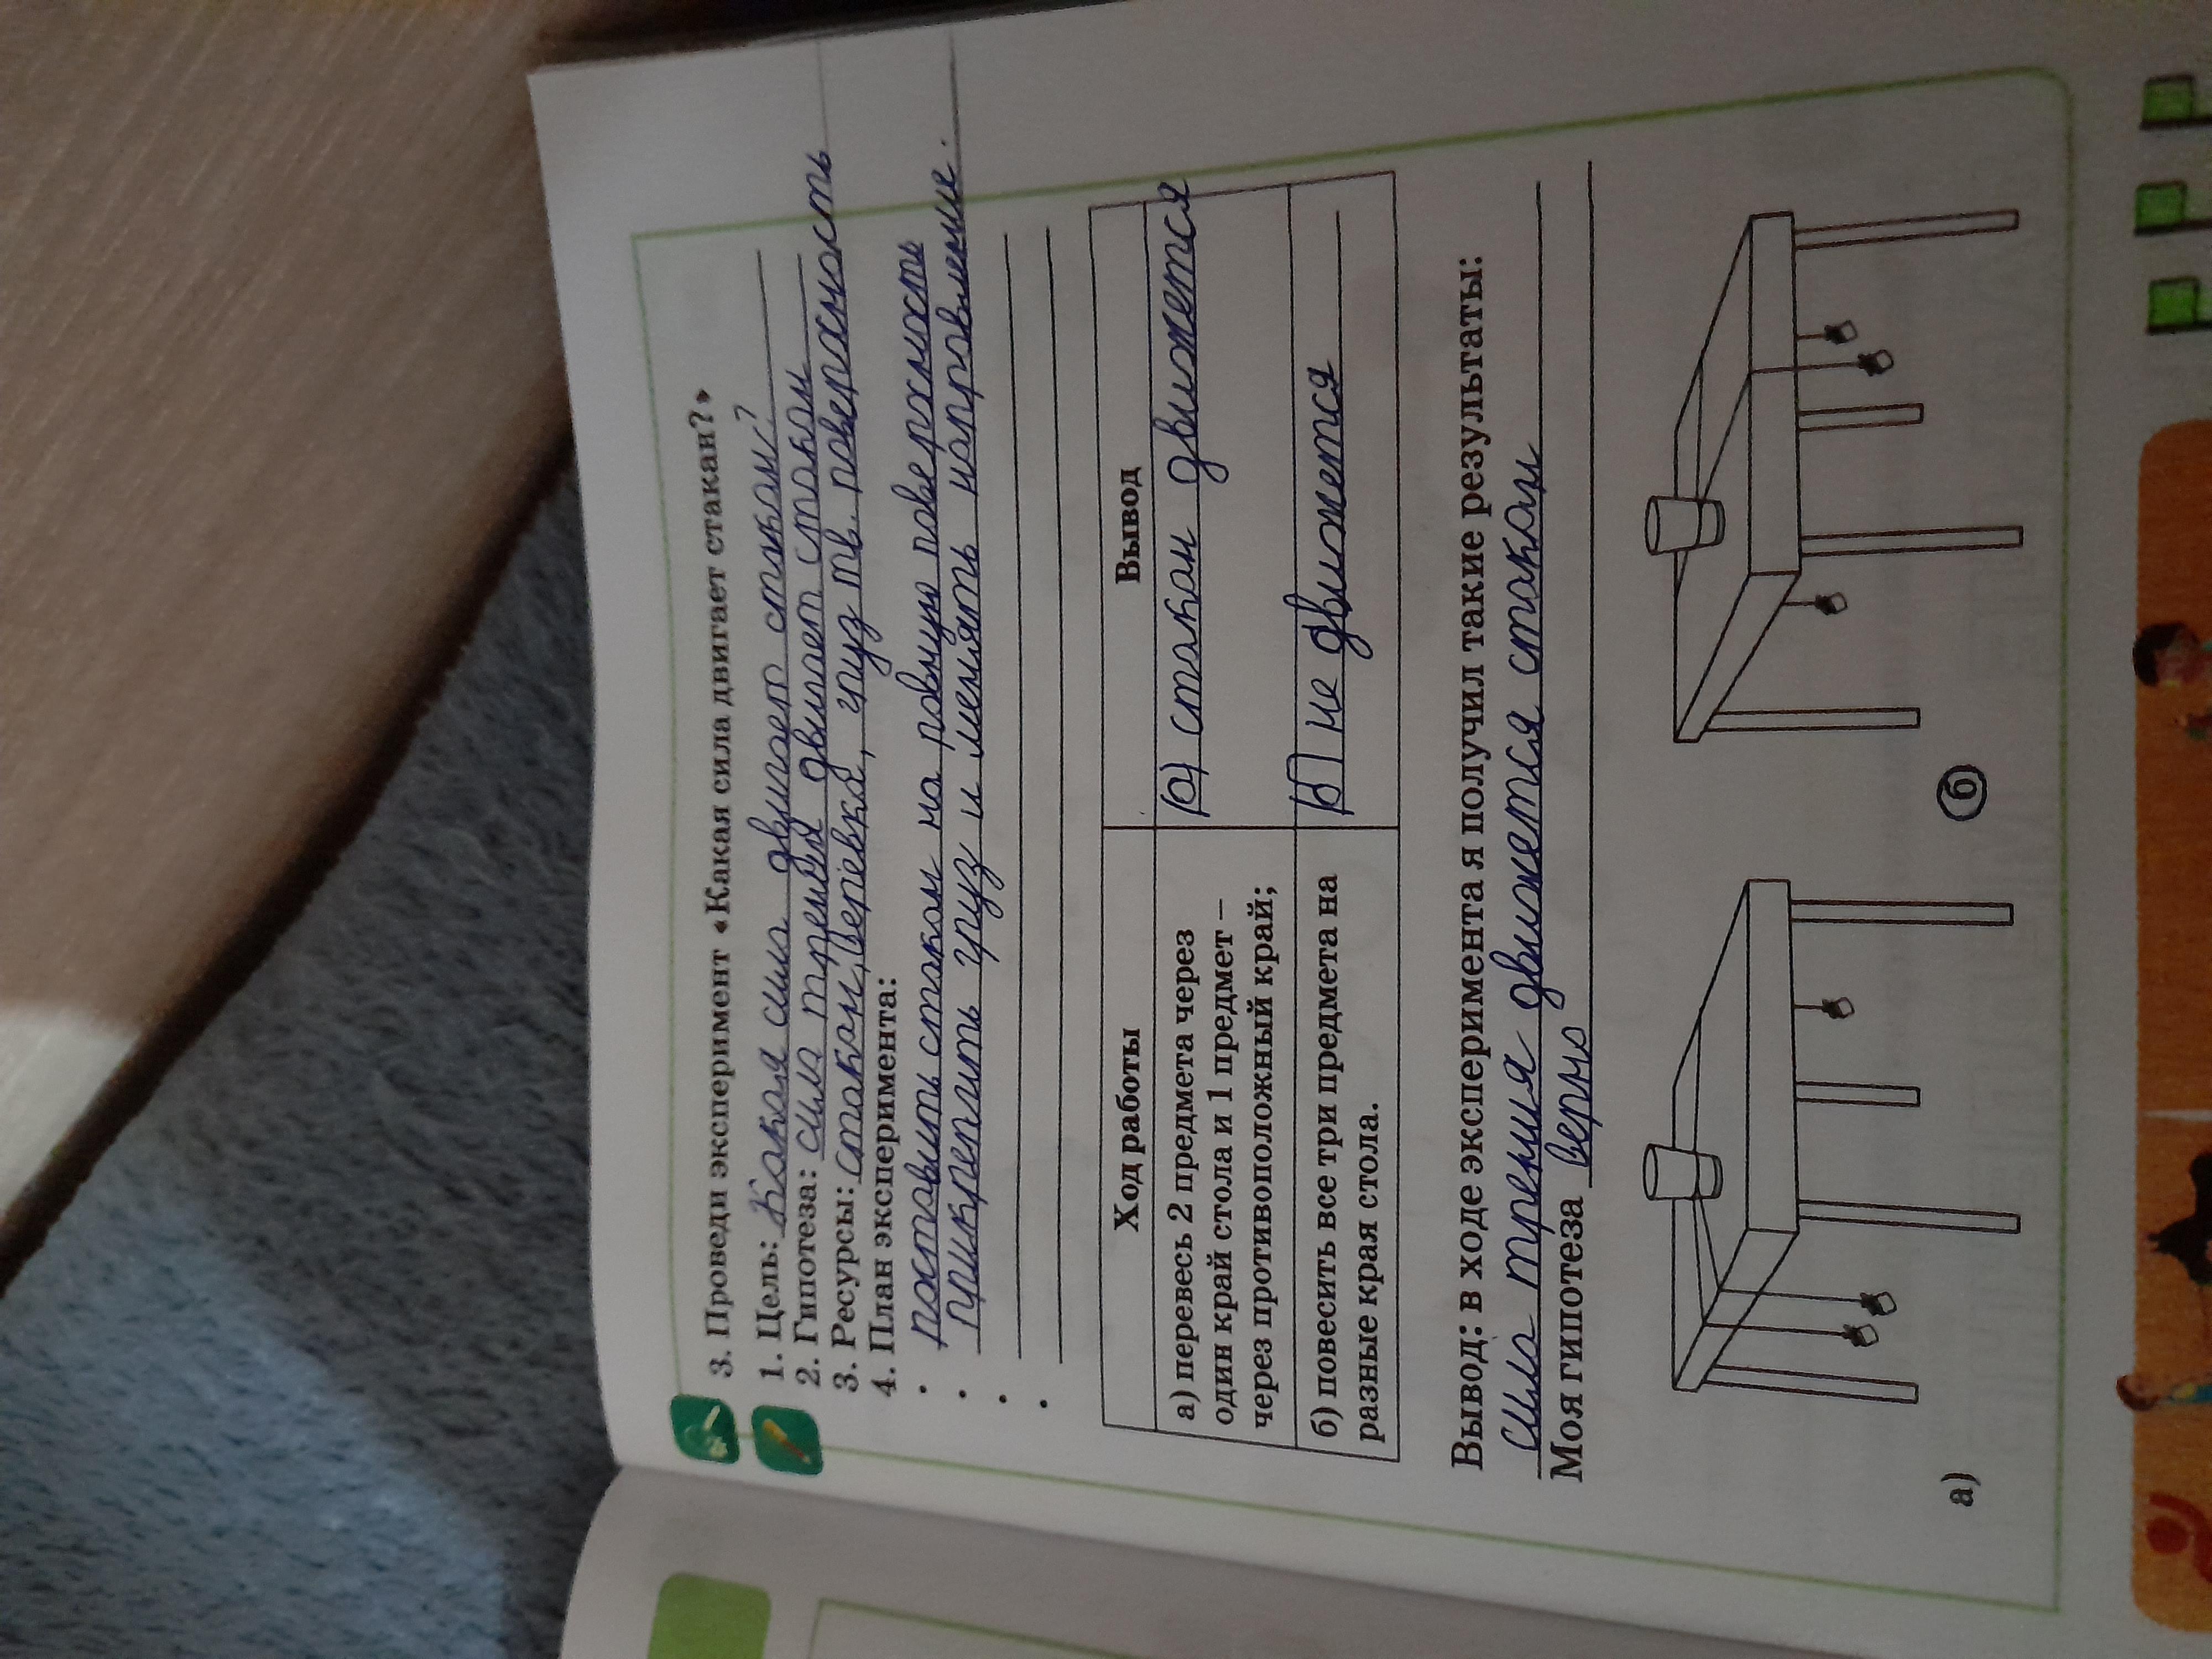 3. Проведи эксперимент «Какая сила двигает стакан?»
1. Цель: Какая сила двигает стакан?
2. Гипотеза: сила трения двигает стакан
3. Ресурсы: стакан, верёвка, груз тв. поверхность
4. План эксперимента:
• поставить стакан на ровную поверхность
• прикрепить груз и менять направление.
•
•
Ход работы
Вывод
а) перевесь 2 предмета через
один край стола и 1 предмет –
через противоположный край;
а) стакан движется
б) повесить все три предмета на
разные края стола.
б) не движется
Вывод: в ходе эксперимента я получил такие результаты:
сила трения движется стакан
Моя гипотеза верна
а)
б